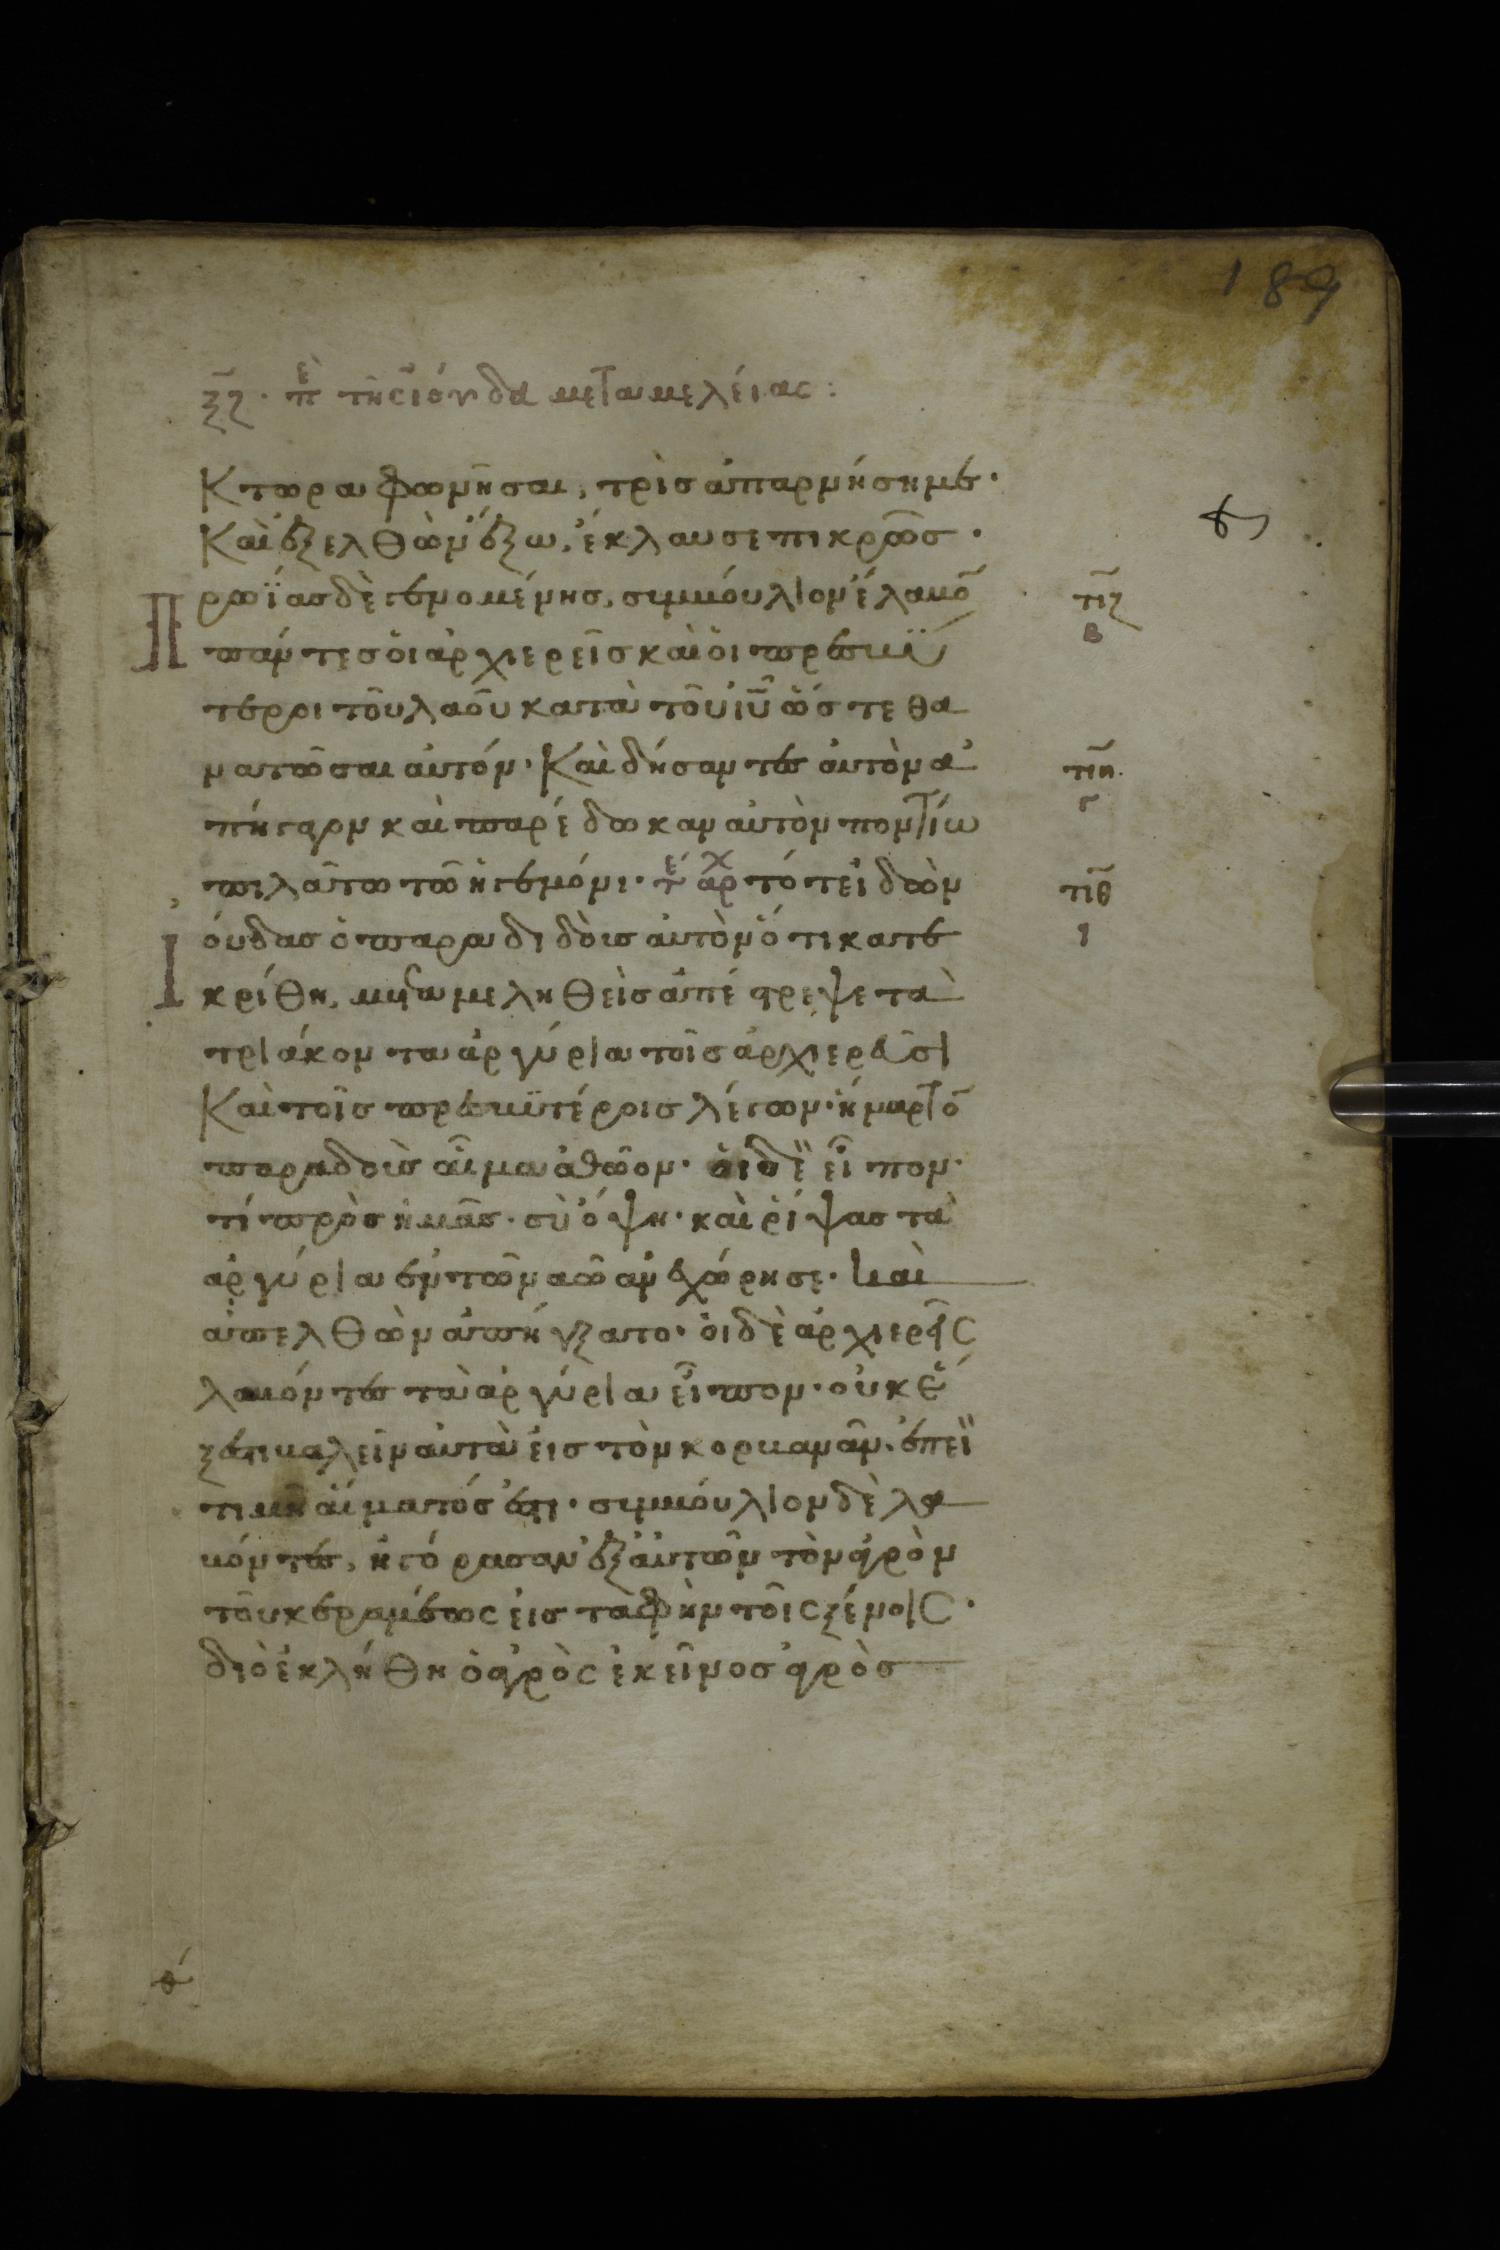 189
ξζ· πε τῆς ἰούδα μεταμελείας:
Κτωρα φωνῆσαι, τρὶσ ἀπαρνήσημε·
Καὶ ἐξελθὼν ἔξω, ἔκλαυσε πικρῶσ·
Πρωΐασ δὲ γενομένησ, συμβούλιον ἔλαβο̅
πάντεσ ὁι ἀρχιερεῖσ καὶ ὁι πρεσβϋ
τεροι τοῦ λαοῦ κατὰ τοῦ ἰ̅υ̅ ὥστε θα
νατῶσαι αὐτόν· Καὶ δήσαντεσ ἀυτὸν ἀ
πήγαγον καὶ παρέδωκαν αὐτὸν ποντίω
πιλάτω τῶ ἡγεμόνι· τε αρχ τότε ἰδὼν
Ἰούδασ ὁ παραδιδοὺσ αὐτὸν ὅτι κατε
κρίθη, μεταμεληθεὶσ ἀπέστρεψε τὰ
τριάκοντα ἀργύρια τοῖσ ἀρχιερεῦσι
Καὶ τοῖσ πρεσβϋτέροισ λέγων· ἥμαρτο̅
παραδοὺσ αἷμα ἀθῶον· ὁι δὲ εἶπον·
τί πρὸσ ἡμᾶσ· σὺ ὄψη· καὶ ῥίψασ τὰ
ἀργύρια ἐν τῶ ναῶ ἀνεχώρησε· καὶ
ἀπελθὼν ἀπήγξατο· ὁι δὲ ἀρχιερεῖς
λαβόντεσ τὰ ἀργύρια εἶπον· οὐκ ἔ
ξεστι βαλεῖν αὐτὰ ἐισ τὸν κορβανᾶν· ἐπεὶ
τιμὴ αἵματόσ ἐστι· συμβούλιον δὲ λα
βόντεσ, ἠγόρασαν ἐξ ἀυτῶν τὸν ἀγρὸν
τοῦ κεραμέως ἐισ ταφὴν τοῖς ξένοις·
διὸ ἐκλήθη ὁ ἀγρὸς ἐκεῖνοσ ἀγρὸσ
τιζ
β
τιη
γ
τιθ
ι